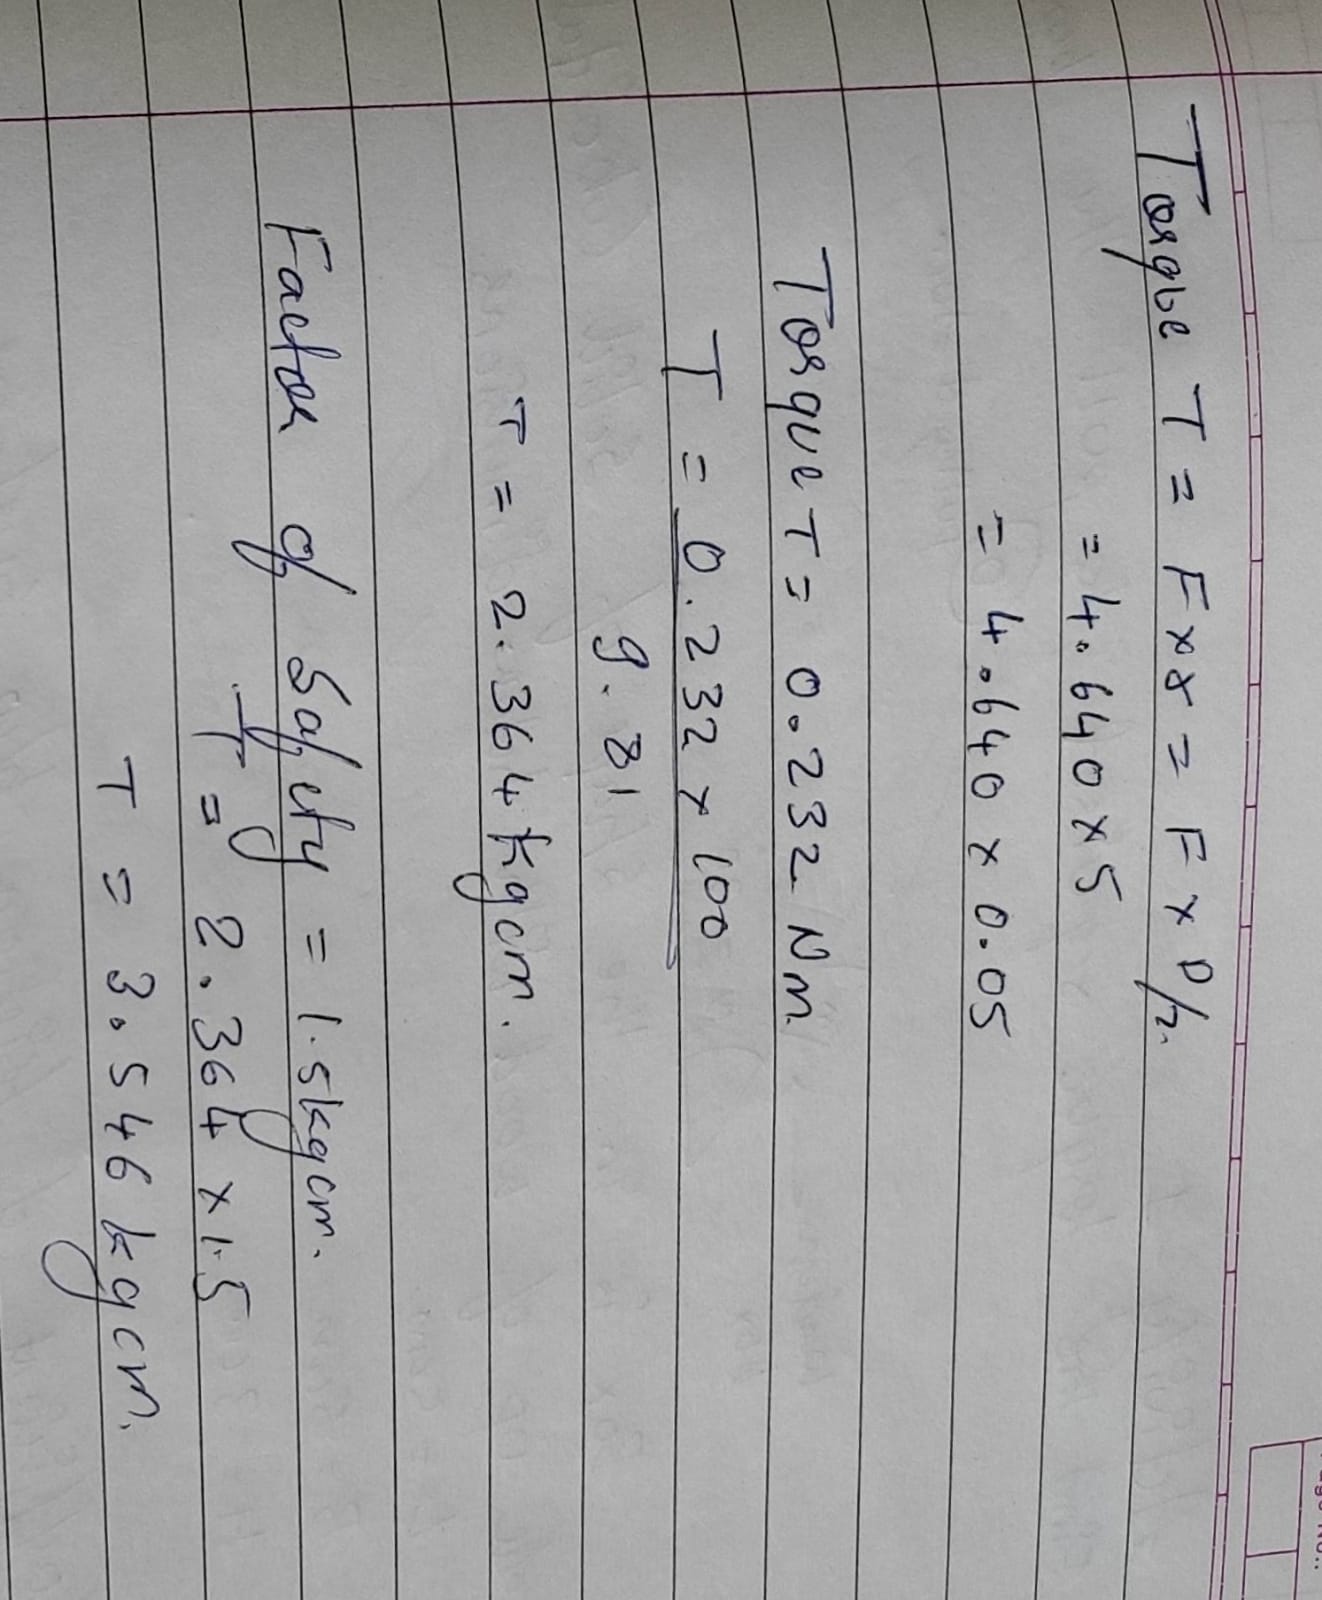 Page No.:
Torque T = F x r = F x D/2.
= 4.640 x 5
= 4.640 x 0.05
Torque T = 0.232 Nm.
T = 0.232 x 100
9.81
T = 2.364 kgcm.
Factor of Safety = 1.5kgcm.
T = 2.364 x 1.5
T = 3.546 kgcm.